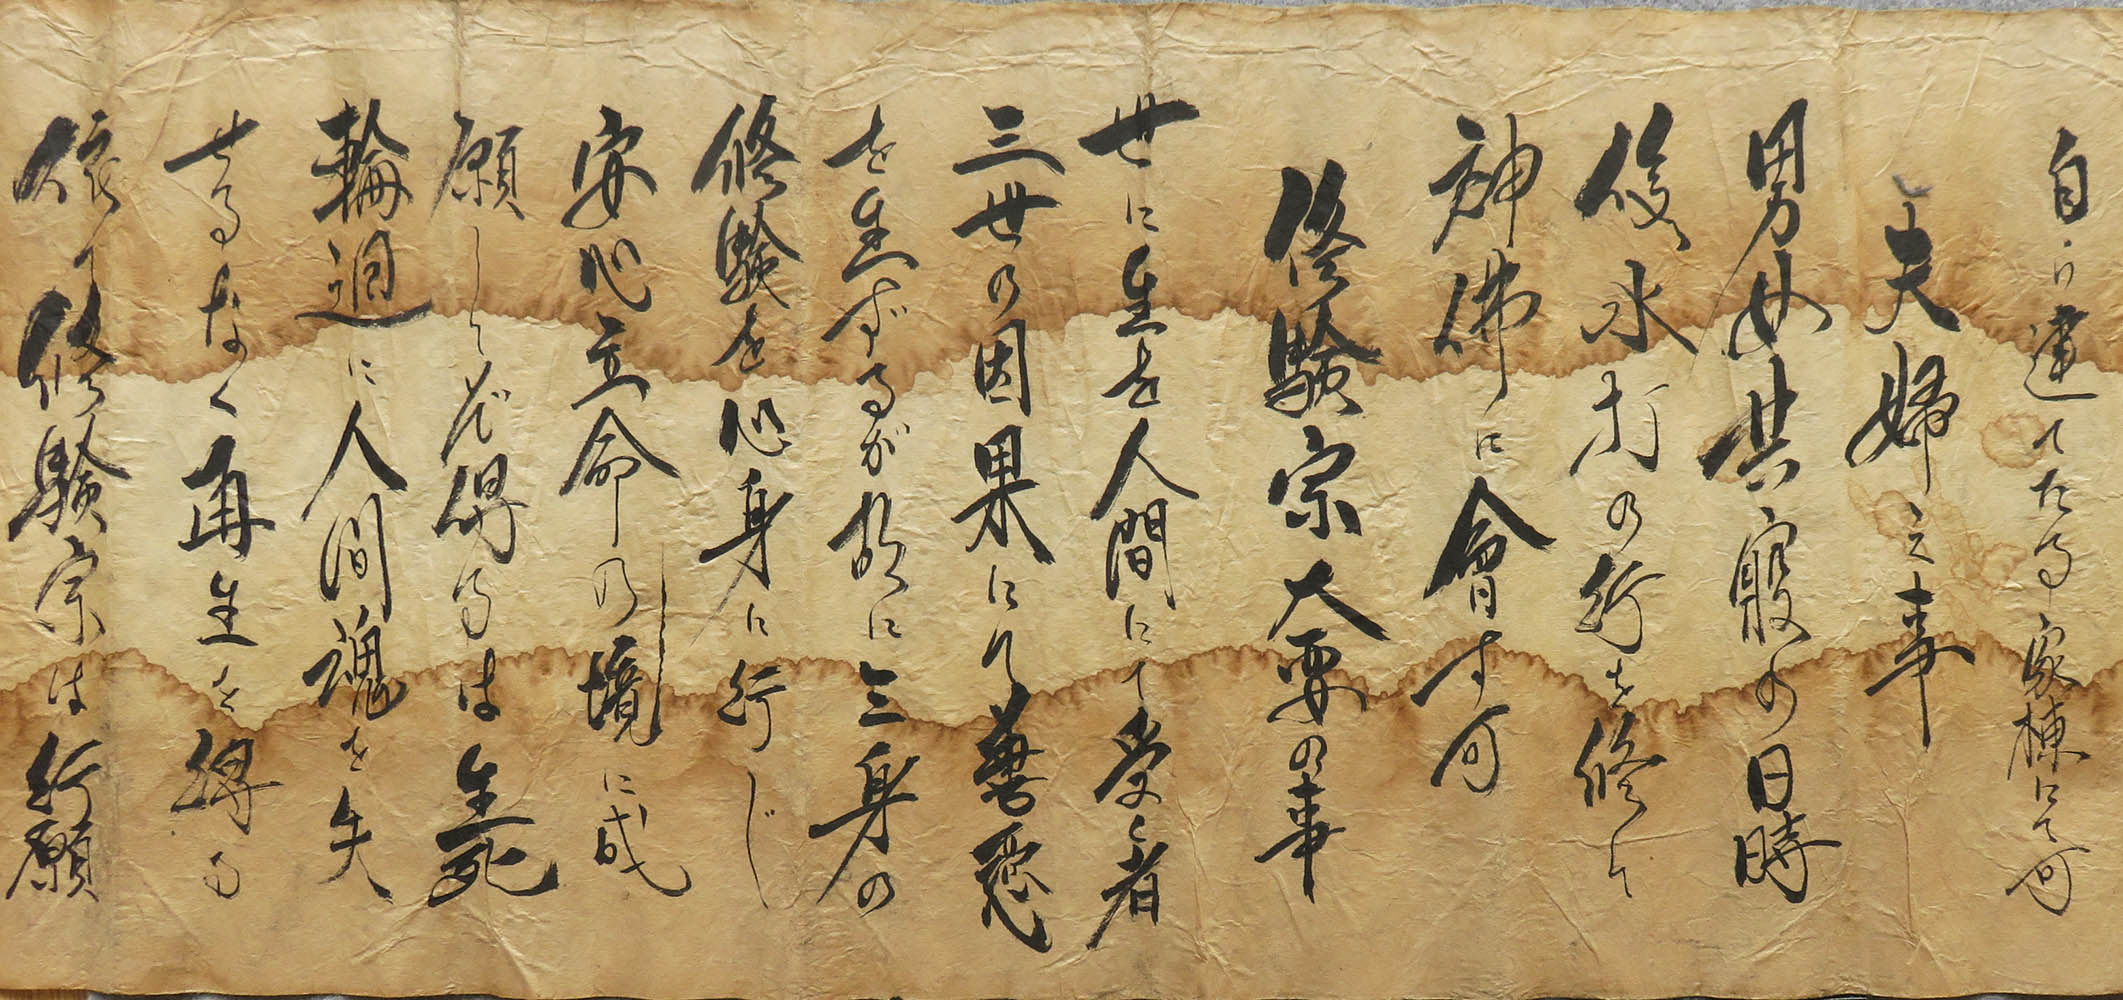 自に建てたる家棟にて可
夫婦之事
男女共寝の日時
後水打の行を修して
神佛に會す可
修験宗大要の事
世に生を人間にて受く者
三世の因果にて善悪
を生ずるが故に三身の
修験を心身に行じ
安心立命の境に成
願しを得るは生死
輪廻に人間魂を失
せるなく再生を得る
依て修験宗は行願